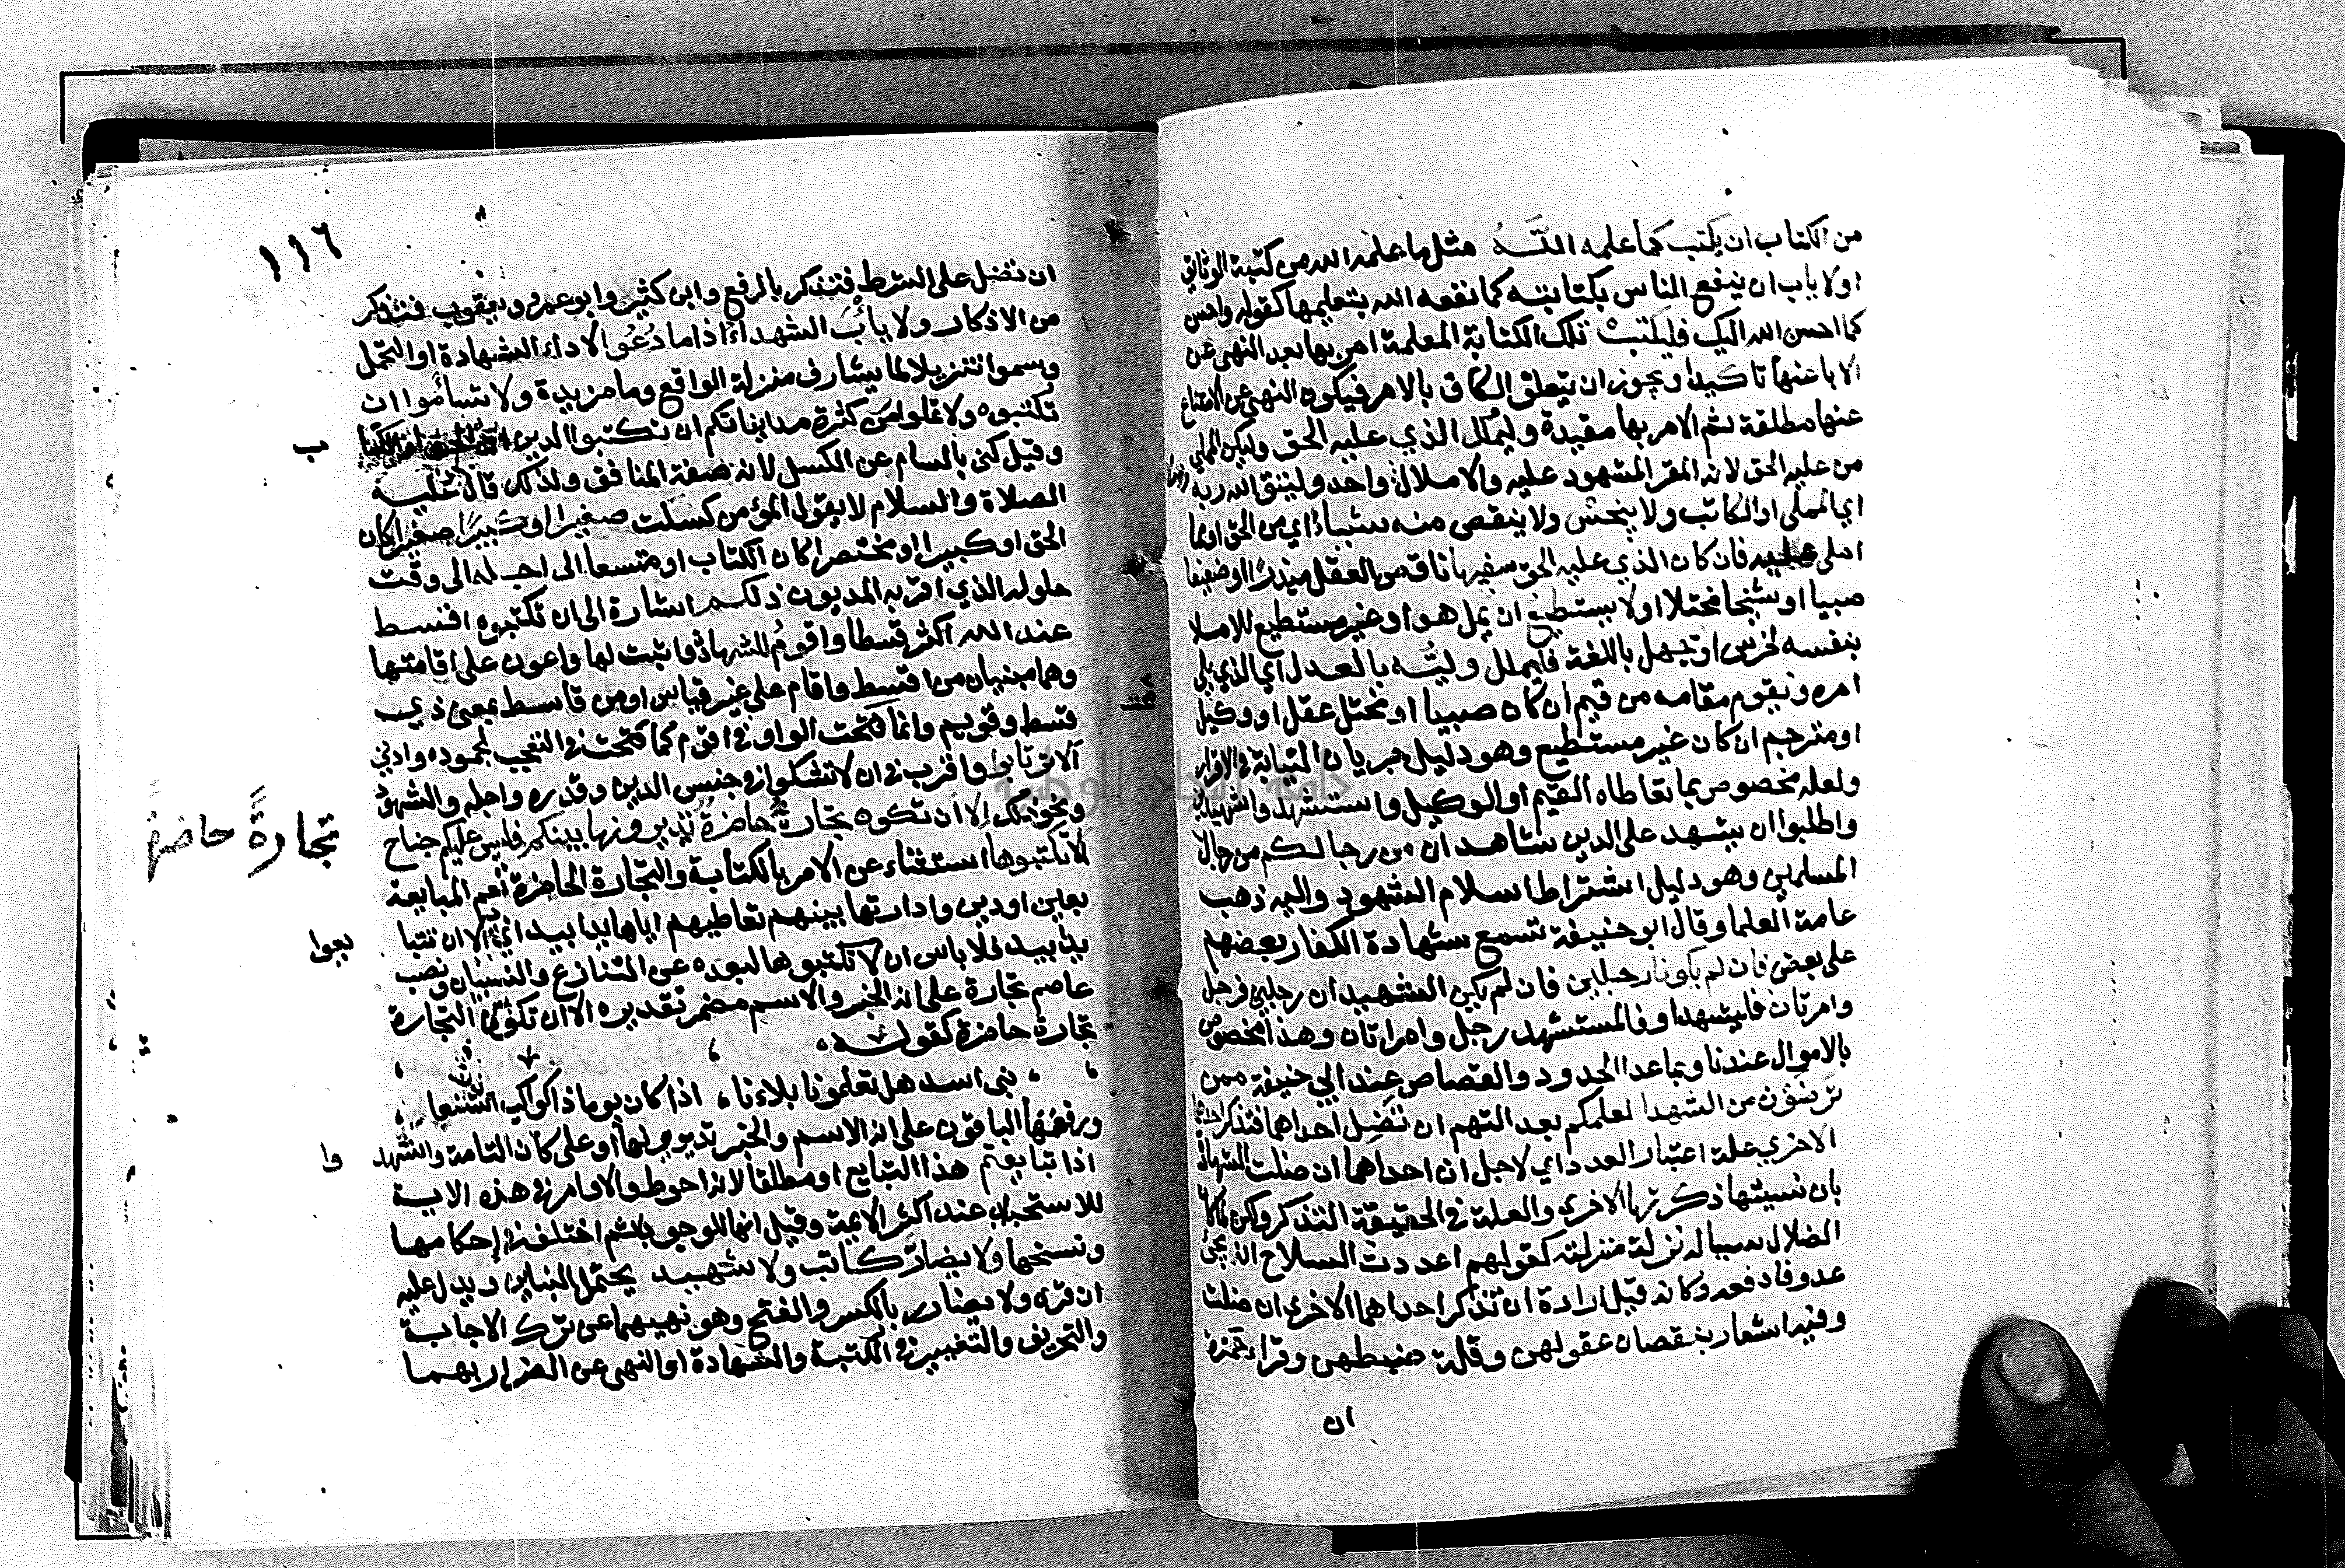 من الكتاب ان يكتب كما علمه الله مثل ما علمه الله من كتبة الوثايق
اولا ياب ان ينفع الناس بكتابته كما نفعه الله بتعليمها كقوله واحسن
كما احسن الله اليك فليكتب تلك الكتابة المعلمة امر بها بعد النهي عن
الابا عنها تاكيدا ويجوز ان يتعلق الكاف بالامر فيكون النهي عن الامتناع
عنها مطلقة ثم الامر بها مقيدة وليملل الذي عليه الحق وليكن المملي
من عليه الحق لانه المقر المشهود عليه والاملال واحد وليتق الله ربه
اي المملي او الكاتب ولا يبخس ولا ينقص منه شيئا اي من الحق او مما
املي عليه فان كان الذي عليه الحق سفيها ناقص العقل مبذرا او ضعيفا
صبيا او شيخا مختلا او لا يستطيع ان يمل هو او غير مستطيع للاملا
بنفسه لخرس او جهل باللغة فليملل وليه بالعدل اي الذي يلي
امره ويقوم مقامه من قيم ان كان صبيا او مختل عقل او وكيل
او مترجم ان كان غير مستطيع وهو دليل جريان النيابة في الاقرار
ولعله مخصوص بما تعاطاه القيم او الوكيل واستشهدوا شهيدين
واطلبوا ان يشهد على الدين شاهدان من رجالكم من رجال
المسلمين وهو دليل اشتراط اسلام الشهود واليه ذهب
عامة العلما وقال ابو حنيفة تسمع شهادة الكفار بعضهم
على بعض فان لم يكونا رجلين فان لم يكن الشهيدان رجلين فرجل
وامرتان فليشهد او فالمستشهد رجل وامراتان وهذا مخصوص
بالاموال عندنا وبما عدا الحدود والقصاص عند ابي حنيفة ممن
ترضون من الشهدا لعلمكم بعدالتهم ان تضل احداهما فتذكر احداهما
الاخري علة اعتبار العدد اي لاجل ان احداهما ان ضلت الشهادة
بان نسيتها ذكرتها الاخري والعلة في الحقيقة التذكر ولكن لما كان
الضلال سببا له نزل منزلته كقولهم اعددت السلاح ان يجئ
عدو فادفعه وكانه قيل ارادة ان تذكر احداهما الاخري ان ضلت
وفيه اشعار بنقصان عقولهن وقلة ضبطهن وقراء حمزة
ان
١١٦
ان تضل على الشرط فتذكر بالرفع وابن كثير وابو عمرو ويعقوب فتذكر
من الاذكار ولا ياب الشهداء اذا ما دعوا لاداء الشهادة او التحمل
وسموا تنزيلا لما يشارف منزلة الواقع وما مزيدة ولا تسأموا ان
تكتبوه ولا تملوا من كثرة مدايناتكم ان تكتبوا الدين
ب
وقيل كني بالسام عن الكسل لانه صفة المنافق ولذلك قال عليه
الصلاة والسلام لا يقول المؤمن كسلت صغيرا او كبيرا صغيرا كان
الحق او كبيرا او مختصرا كان الكتاب او متسعا الى اجله الى وقت
حلوله الذي اقر به المديون ذلكم اشارة الى ان تكتبوه اقسط
عند الله اكثر قسطا واقوم للشهادة واثبت لها واعون على اقامتها
وهما مبنيان من اقسط واقام على غير قياس او من قاسط بمعنى ذي
قسط وقويم وانما فتحت الواو في اقوم كما فتحت في التعجب لجموده وادني
الا ترتابوا واقرب في ان لا تشكوا في جنس الدين وقدره واجله والشهود
ونحو ذلك الا ان تكون تجارة حاضرة تديرونها بينكم فليس عليكم جناح
تجارة حاضرة
الا تكتبوها استثناء عن الامر بالكتابة والتجارة الحاضرة تعم المبايعة
بعين او دين وادارتها بينهم تعاطيهم اياها يدا بيد اي الا ان تتبا
يعوا
يدا بيد فلا باس ان لا تكتبوها لبعده عن التنازع والنسيان ونصب
عاصم تجارة على انه الخبر والاسم مضمر تقديره الا ان تكون التجارة
تجارة حاضرة كقوله
بني اسد هل تعلمون بلاءنا اذا كان يوما ذا كواكب اشنعا
ورفعها الباقون على انه الاسم والخبر تديرونها او على كان التامة واشهد
وا
اذا تبايعتم هذا التبايع او مطلقا لانه احوط والاوامر في هذه الاية
للاستحباب عند اكثر الايمة وقيل انها للوجوب ثم اختلف في احكامها
ونسخها ولا يضار كاتب ولا شهيد يحتمل البناين ويدل عليه
ان قرئ ولا يضارر بالكسر والفتح وهو نهيهما عن ترك الاجابة
والتحريف والتغيير في الكتبة والشهادة او النهي عن الضرار بهما
جامعة النجاح الوطنية